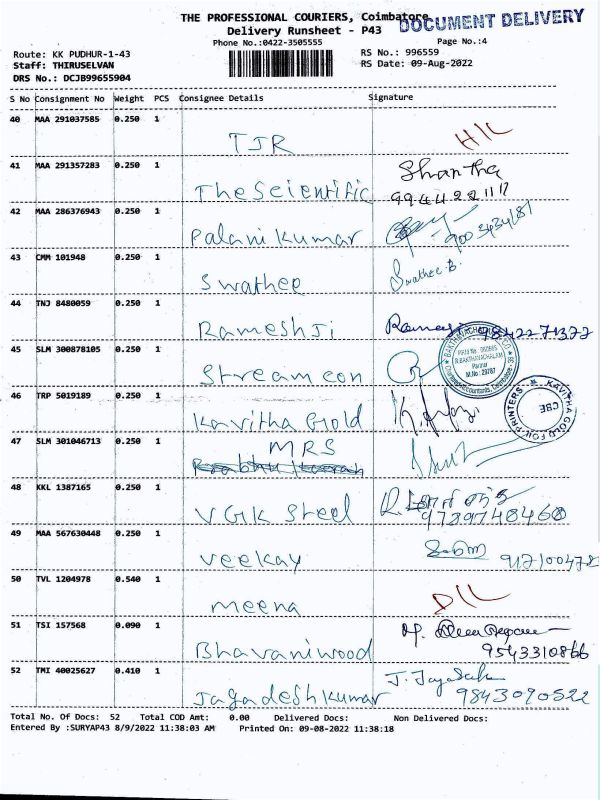 THE PROFESSIONAL COURIERS, Coimbatore
DOCUMENT DELIVERY
Delivery Runsheet - P43
Phone No.:0422-3505555
Page No.:4
Route: KK PUDHUR-1-43
RS No.: 996559
Staff: THIRUSELVAN
RS Date: 09-Aug-2022
DRS No.: DCJB99655904
S No Consignment No Weight PCS Consignee Details Signature
40 MAA 291037585 0.250 1
TJR
41 MAA 291357283 0.250 1 Shantha
The Scientific
42 MAA 286376943 0.250 1
Palani kumar
43 CMM 101948 0.250 1 Swathee B.
Swathee
44 TNJ 8480059 0.250 1
Rameshji 9842271377
45 SLM 300878105 0.250 1
Streamcon
46 TRP 5019189 0.250 1
Kavitha Gold
KAVITHA GOLD FOR PRINTERS
CBE
47 SLM 301046713 0.250 1
MRS
48 KKL 1387165 0.250 1
VGK Steel 9789748460
49 MAA 567630448 0.250 1
Veekay
50 TVL 1204978 0.540 1
Meena
51 TSI 157568 0.090 1
Bhavaniwood 9543310866
52 TMI 40025627 0.410 1
Jagadeshkumar 9843090522
Total No. Of Docs: 52 Total COD Amt: 0.00 Delivered Docs: Non Delivered Docs:
Entered By :SURYAP43 8/9/2022 11:38:03 AM Printed On: 09-08-2022 11:38:18